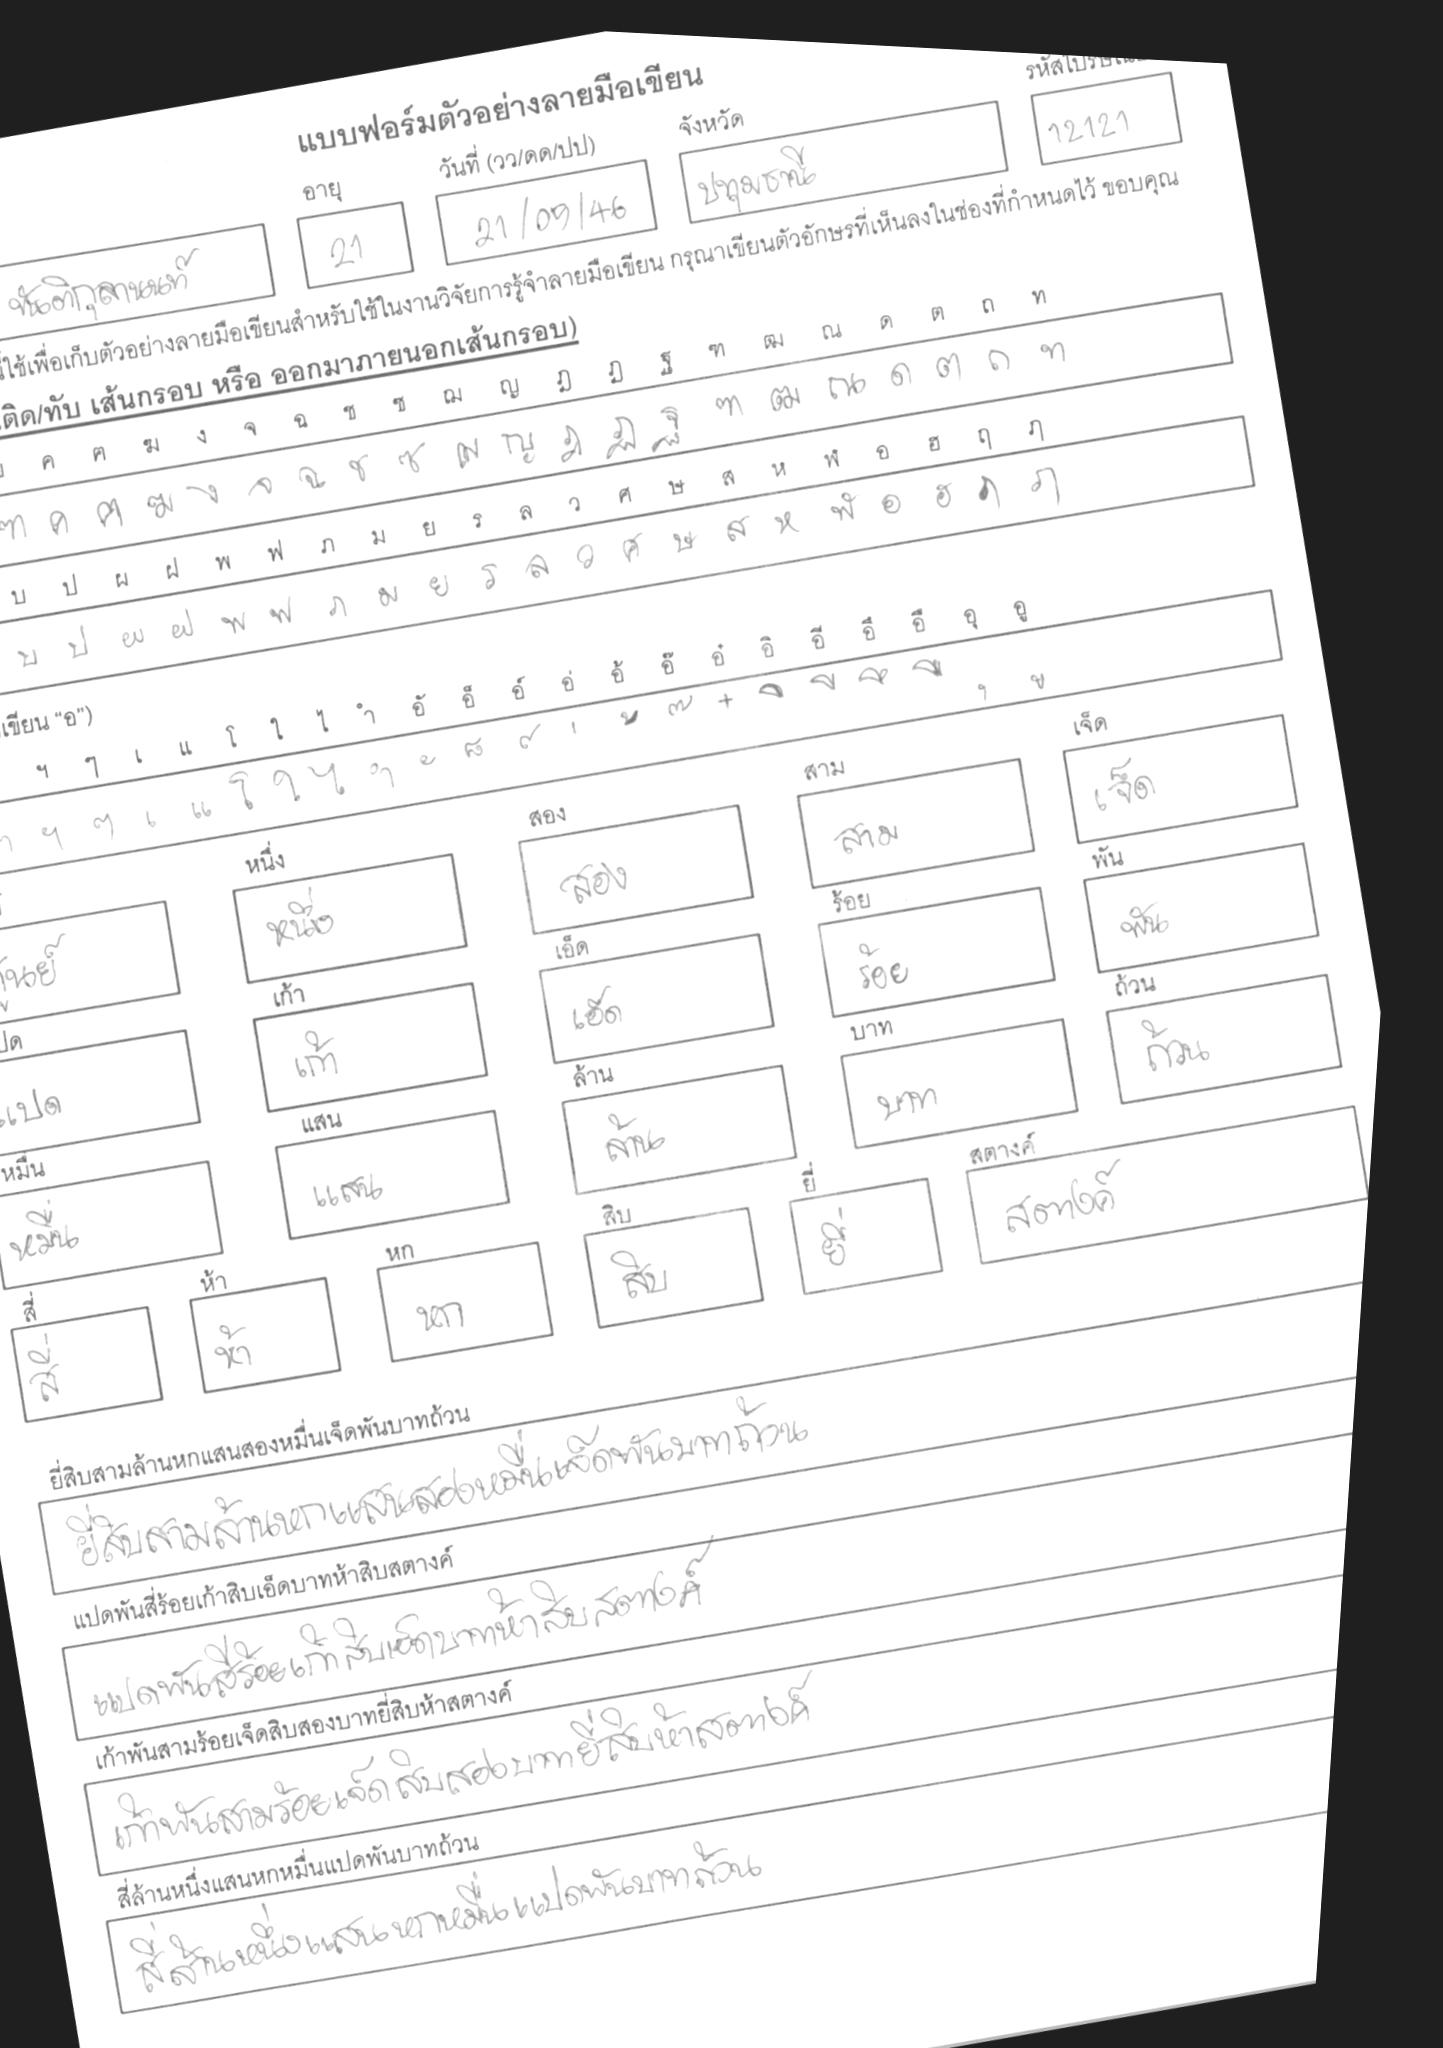 แบบฟอร์มตัวอย่างลายมือเขียน
อายุ วันที่ (วว/ดด/ปป) จังหวัด
21 21/09/46 ปทุมธานี 12121
ใช้เพื่อเก็บตัวอย่างลายมือเขียนสำหรับใช้ในงานวิจัยการรู้จำลายมือเขียน กรุณาเขียนตัวอักษรที่เห็นลงในช่องที่กำหนดไว้ ขอบคุณ
ติด/ทับ เส้นกรอบ หรือ ออกมาภายนอกเส้นกรอบ)
ค ฅ ฆ ง จ ฉ ช ซ ฌ ญ ฎ ฏ ฐ ฑ ฒ ณ ด ต ถ ท
ค ฅ ฆ ง จ ฉ ช ซ ฌ ญ ฎ ฏ ฐ ฑ ฒ ณ ด ต ถ ท
บ ป ผ ฝ พ ฟ ภ ม ย ร ล ว ศ ษ ส ห ฬ อ ฮ ฤ ฦ
บ ป ผ ฝ พ ฟ ภ ม ย ร ล ว ศ ษ ส ห ฬ อ ฮ ฤ ฦ
เขียน “อ”)
ฯ ๆ เ แ โ ใ ไ ำ อั อ็ อ์ อ่ อ้ อ๊ อ๋ อิ อี อึ อื อุ อู
ฯ ๆ เ แ โ ใ ไ ำ ั ็ ์ ่ ้ ๊ ๋ ิ ี ึ ื ุ ู
หนึ่ง สอง สาม เจ็ด
ศูนย์ หนึ่ง สอง สาม เจ็ด
เก้า เอ็ด ร้อย พัน
แปด เก้า เอ็ด ร้อย พัน
หมื่น แสน ล้าน บาท ถ้วน
หมื่น แสน ล้าน บาท ถ้วน
สี่ ห้า หก สิบ ยี่ สตางค์
สี่ ห้า หก สิบ ยี่ สตางค์
ยี่สิบสามล้านหกแสนสองหมื่นเจ็ดพันบาทถ้วน
ยี่สิบสามล้านหกแสนสองหมื่นเจ็ดพันบาทถ้วน
แปดพันสี่ร้อยเก้าสิบเอ็ดบาทห้าสิบสตางค์
แปดพันสี่ร้อยเก้าสิบเอ็ดบาทห้าสิบสตางค์
เก้าพันสามร้อยเจ็ดสิบสองบาทยี่สิบห้าสตางค์
เก้าพันสามร้อยเจ็ดสิบสองบาทยี่สิบห้าสตางค์
สี่ล้านหนึ่งแสนหกหมื่นแปดพันบาทถ้วน
สี่ล้านหนึ่งแสนหกหมื่นแปดพันบาทถ้วน